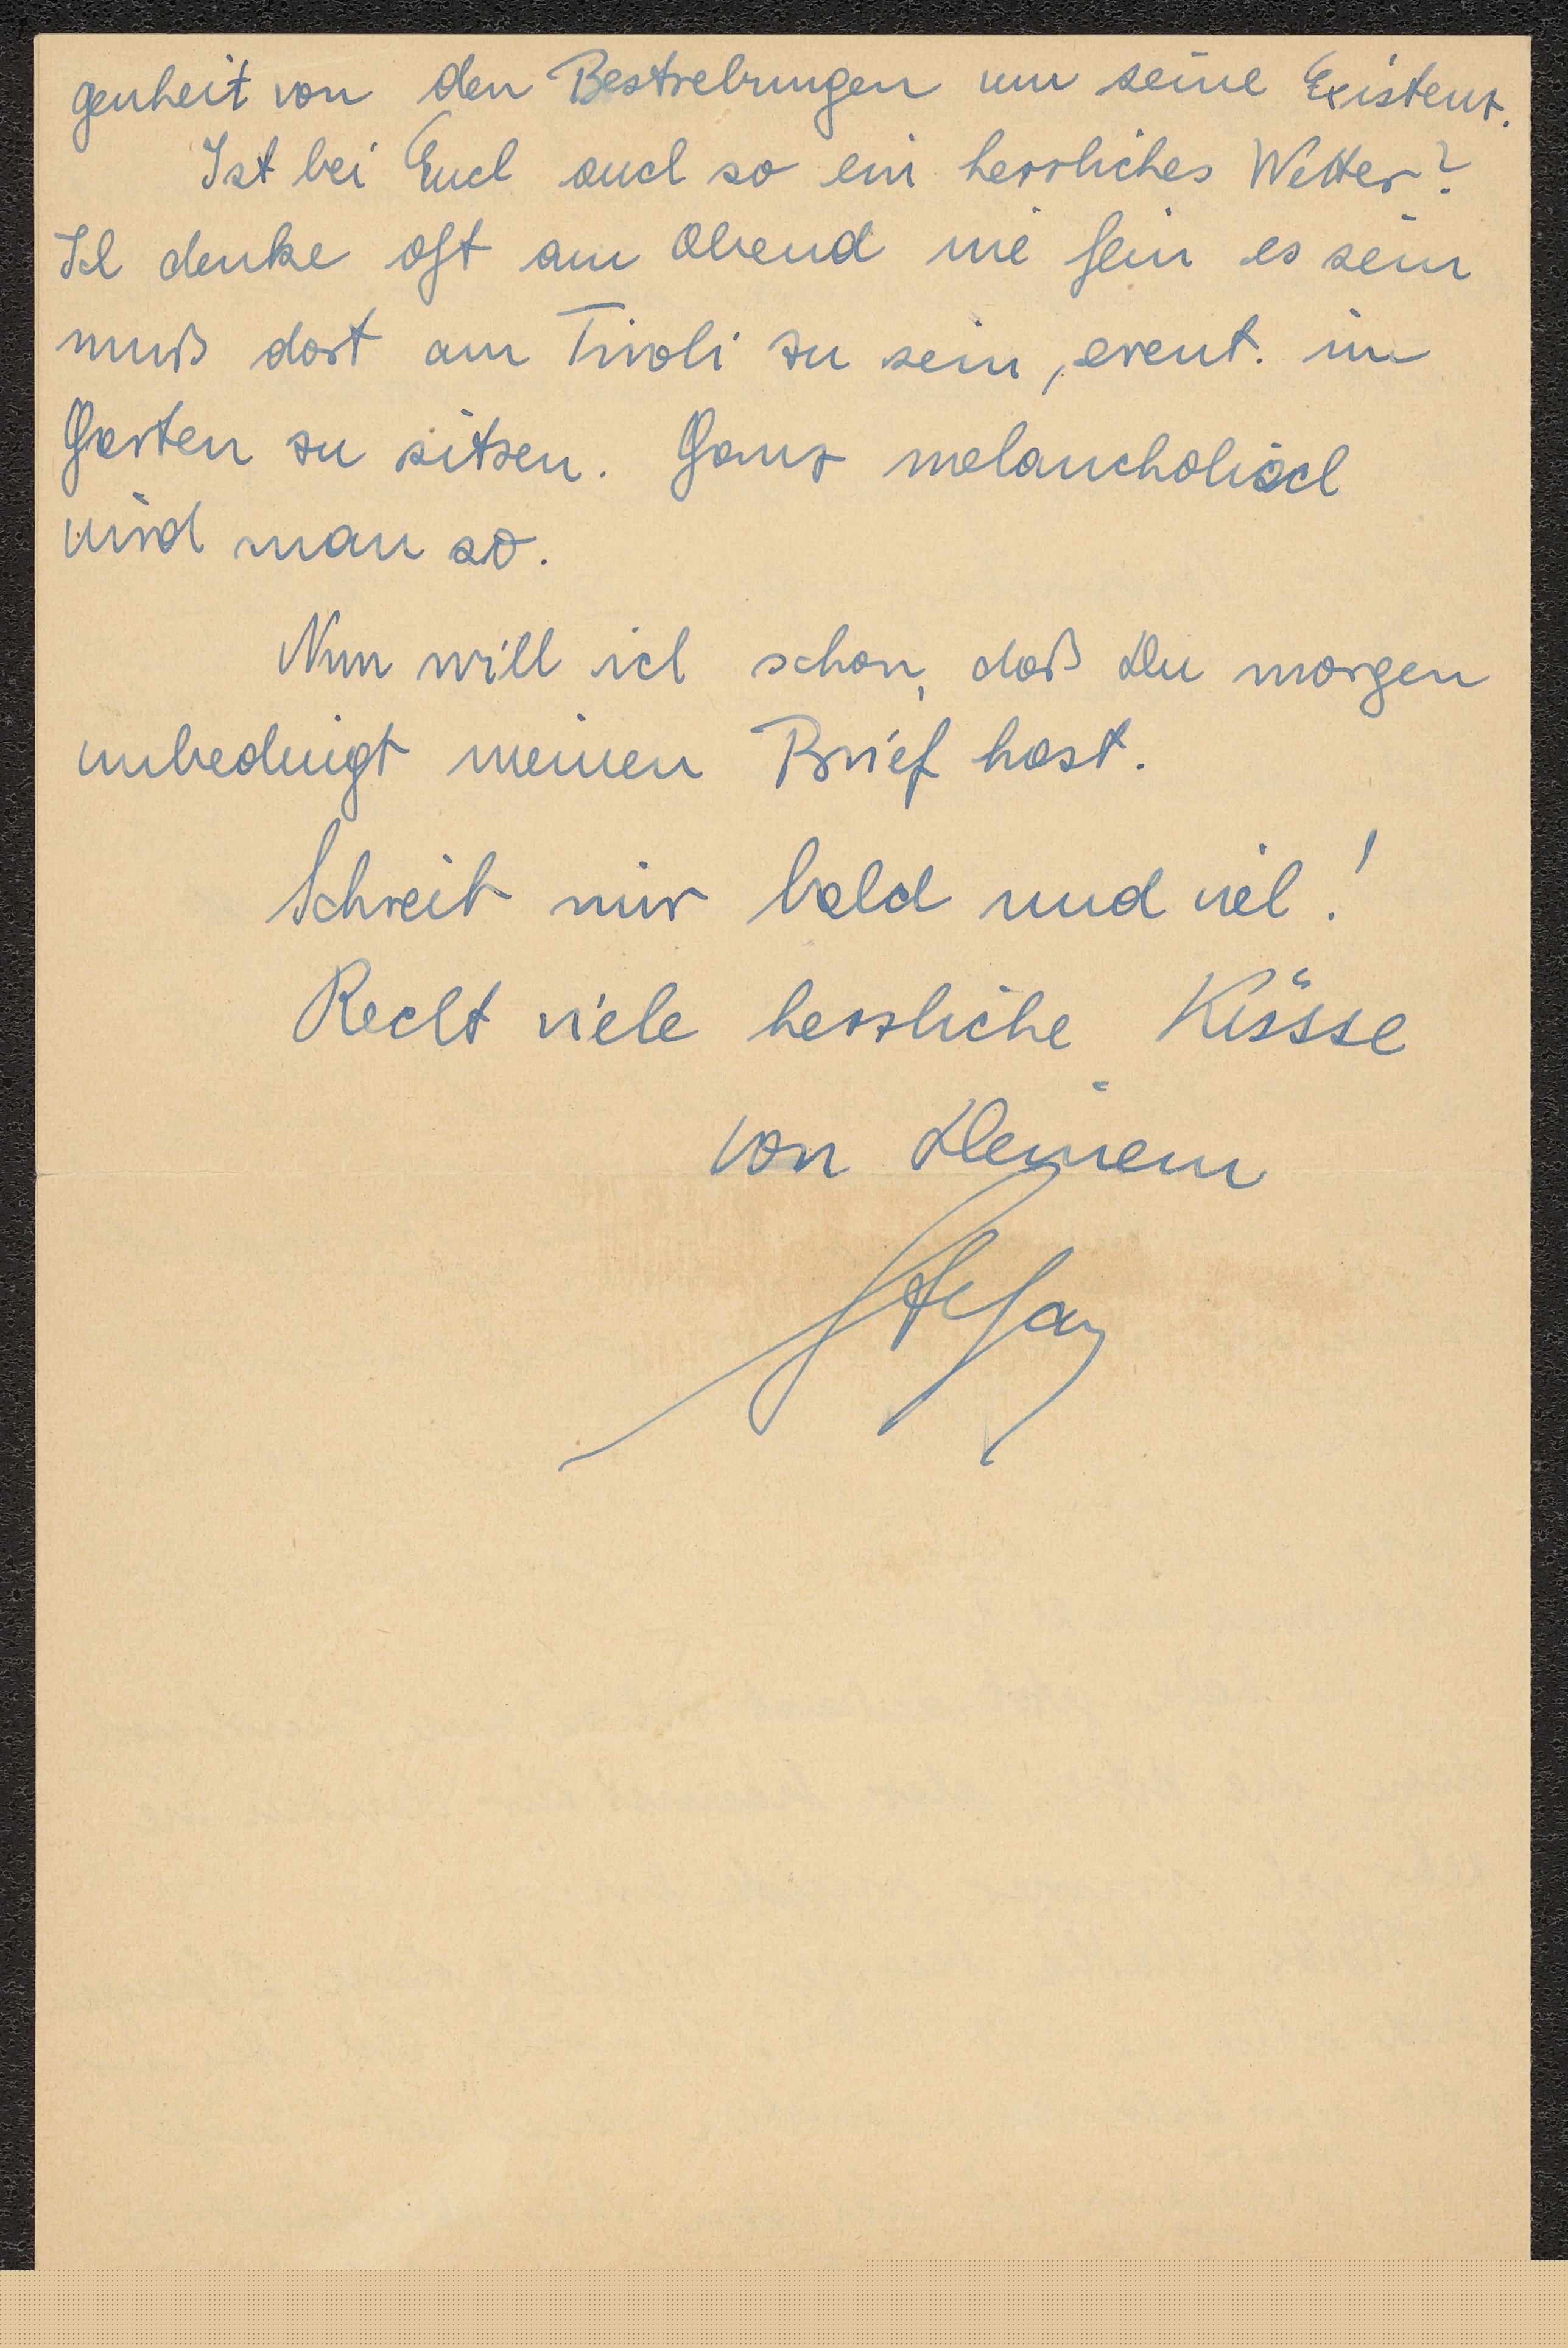 genheit von den Bestrebungen um seine Existenz.
Ist bei Euch auch so ein herrliches Wetter?
Ich denke oft am Abend wie fein es sein
muß dort am Tivoli zu sein, event. im
Garten zu sitzen. Ganz melancholisch
wird man so.
Nun will ich schon, daß Du morgen
unbedingt meinen Brief hast.
Schreib mir bald und viel!
Recht viele herzliche Küsse
von Deinem
Stefan